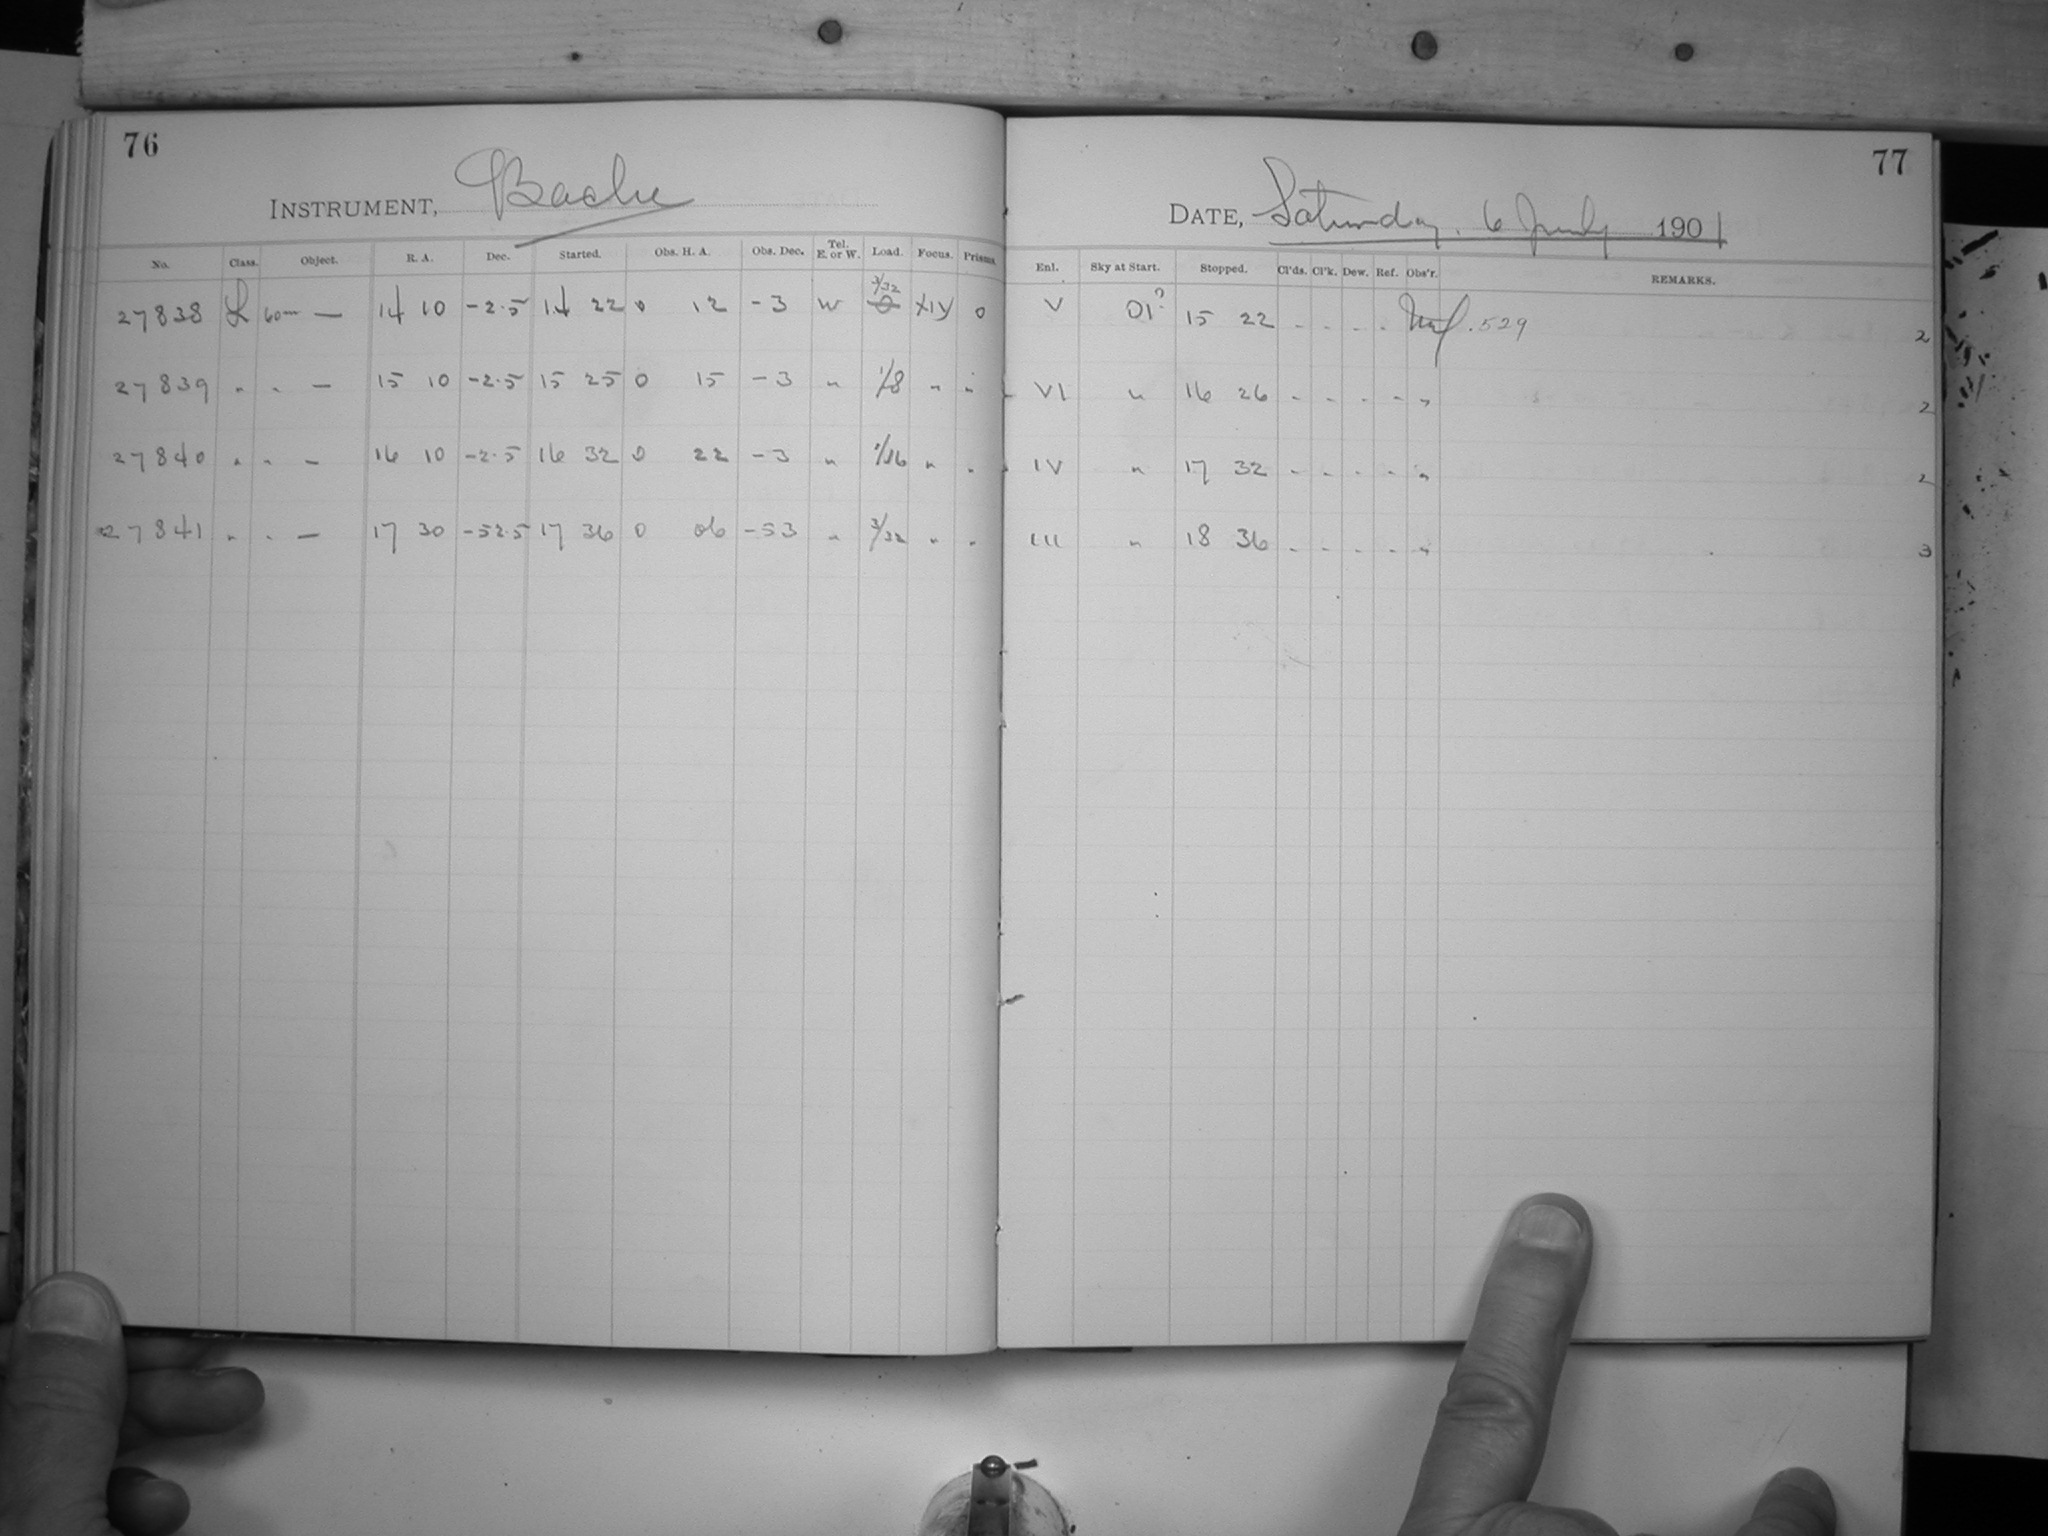 76
INSTRUMENT, Bache
No. Class. Object. R. A. Dec. Started. Obs. H. A. Obs. Dec. Tel. E. or W. Load. Focus. Prisms.
27838 L 60m — 14 10 -2.5 14 22 0 12 -3 W 3/32 XIV 0
27839 " " — 15 10 -2.5 15 25 0 15 -3 " 1/8 " "
27840 " " — 16 10 -2.5 16 32 0 22 -3 " 1/16 " "
27841 " " — 17 30 -52.5 17 36 0 06 -53 " 3/32 " "
77
DATE, Saturday, 6 July 1901
Enl. Sky at Start. Stopped. Cl'ds. Cl'k. Dew. Ref. Obs'r. REMARKS.
V 01? 15 22 - - - - .529 2
VI " 16 26 - - - - " 2
IV " 17 32 - - - - " 2
III " 18 36 - - - - " 3